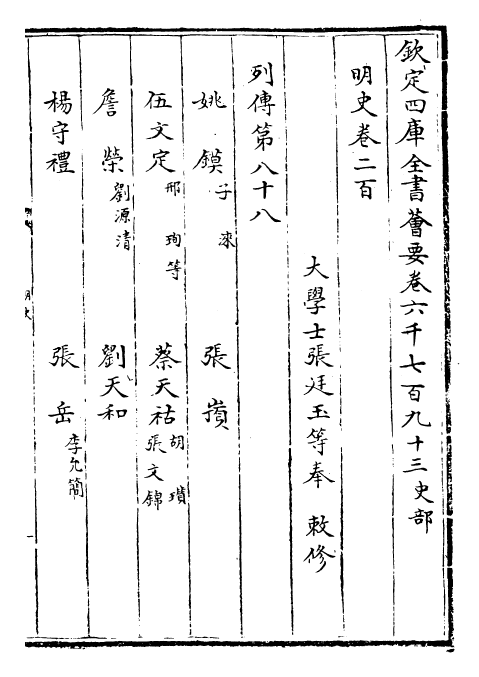 欽定四庫全書薈要卷六千七百九十三史部
明史卷二百
大學士張廷玉等奉 敕修
列傳第八十八
姚鏌子淶 張嵿
伍文定邢珣等 蔡天祐胡瓚張文錦
詹榮劉源清 劉天和
楊守禮 張岳李允簡